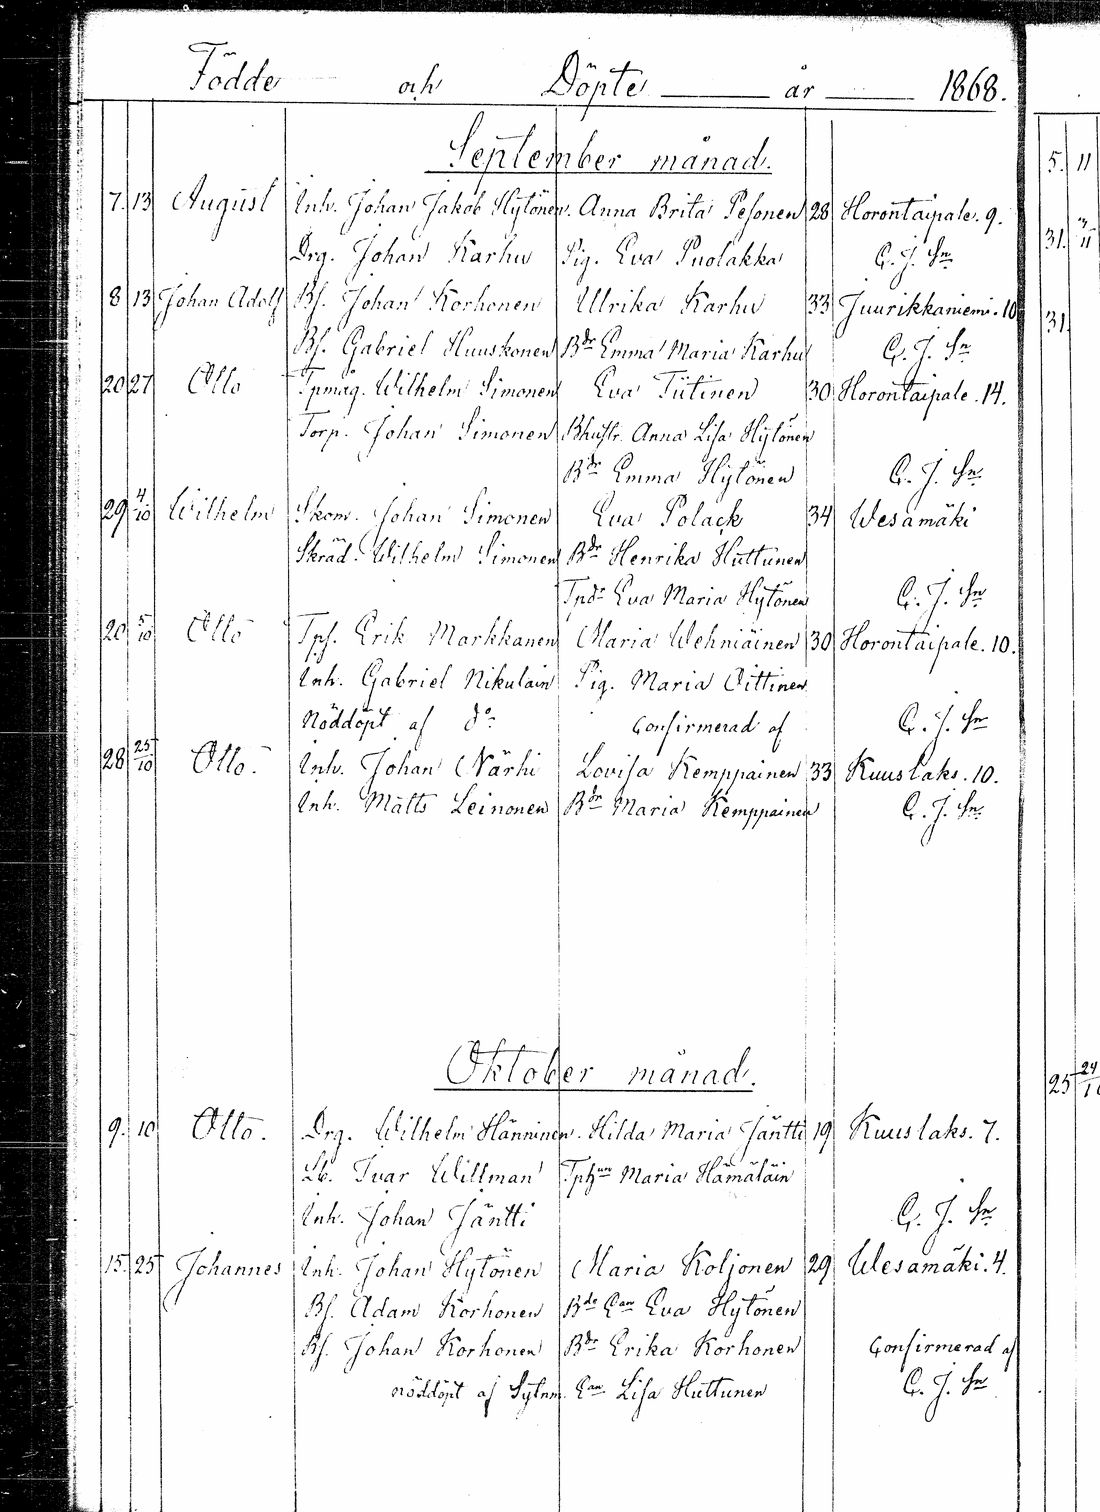 Födde och Döpte år 1868.
September månad.
7. 13 August Inh. Johan Jakob Hytönen. Anna Brita Pesonen 28 Horontaipale. 9.
Drg. Johan Karhu Pig. Eva Puolakka C. J. Sn
8 13 Johan Adolf Bf. Johan Korhonen Ulrika Karhu 33 Juurikkaniemi. 10
Bf. Gabriel Huuskonen Bdr Emma Maria Karhu C. J. Sn
20 27 Otto Tpmåg. Wilhelm Simonen Eva Tiitinen 30 Horontaipale. 14.
Torp. Johan Simonen Bhustr. Anna Lisa Hytönen
Bdr Emma Hytönen C. J. Sn
29 4/10 Wilhelm Skom. Johan Simonen Eva Polack 34 Wesamäki
Skräd. Wilhelm Simonen Bdr Henrika Huttunen
Tpdr Eva Maria Hytönen C. J. Sn
20 5/10 Otto Tpf. Erik Markkanen Maria Wehniäinen 30 Horontaipale. 10.
Inh. Gabriel Nikulain Pig. Maria Oittinen
Nöddöpt af do Confirmerad af C. J. Sn
28 25/10 Otto. Inh. Johan Närhi Lovisa Kemppainen 33 Kuuslaks. 10.
Inh. Matts Leinonen Bdr Maria Kemppainen C. J. Sn
Oktober månad.
9. 10 Otto. Drg. Wilhelm Hänninen. Hilda Maria Jäntti 19 Kuuslaks. 7.
Lb. Ivar Willman Maria Hämäläin
Inh. Johan Jäntti C. J. Sn
15. 25 Johannes Inh. Johan Hytönen Maria Koljonen 29 Wesamäki. 4.
Bf. Adam Korhonen Eva Hytönen
Bf. Johan Korhonen Bdr Erika Korhonen Confirmerad af
nöddöpt af Lisa Huttunen C. J. Sn
5. 11
31.
11
31.
25 24/10